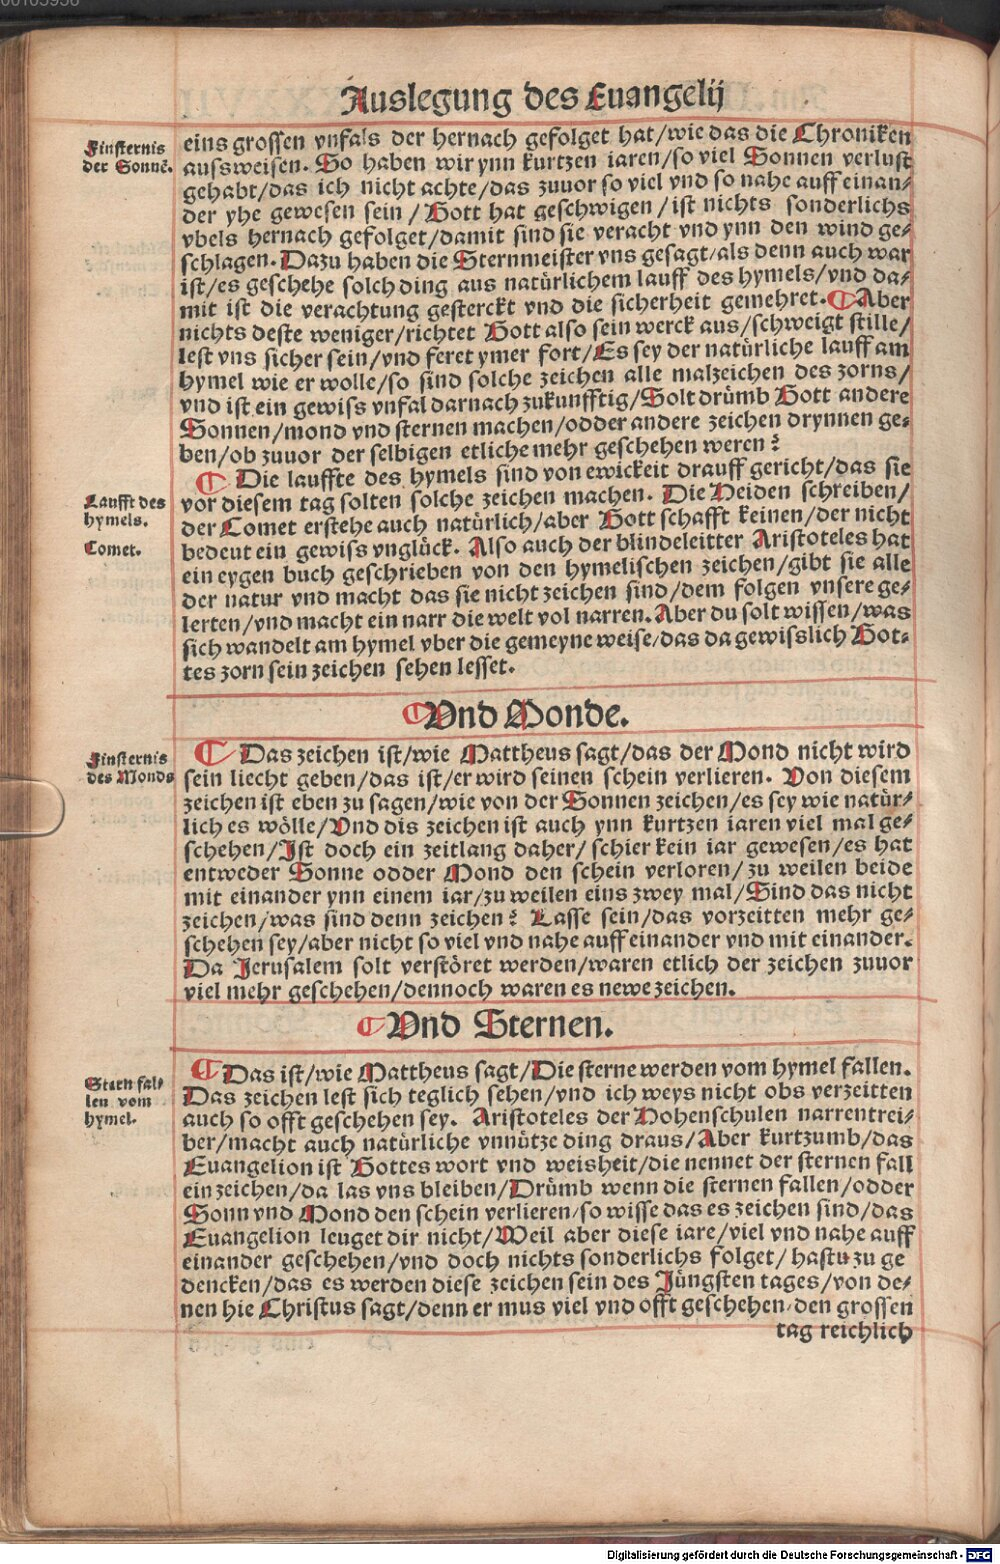 Auslegung des Euangelij
Finsternis
der Sonnē.
eins grossen vnfals der hernach gefolget hat/wie das die Chroniken
aussweisen. So haben wir ynn kurtzen iaren/so viel Sonnen verlust
gehabt/das ich nicht achte/das zuuor so viel vnd so nahe auff einan⸗
der yhe gewesen sein/Gott hat geschwigen/ist nichts sonderlichs
vbels hernach gefolget/damit sind sie veracht vnd ynn den wind ge⸗
schlagen. Dazu haben die Sternmeister vns gesagt/als denn auch war
ist/es geschehe solch ding aus natürlichem lauff des hymels/vnd da⸗
mit ist die verachtung gesterckt vnd die sicherheit gemehret. Aber
nichts deste weniger/richtet Gott also sein werck aus/schweigt stille/
lest vns sicher sein/vnd feret ymer fort/Es sey der natürliche lauff am
hymel wie er wolle/so sind solche zeichen alle malzeichen des zorns/
vnd ist ein gewiss vnfal darnach zukunfftig/Solt drümb Gott andere
Sonnen/mond vnd sternen machen/odder andere zeichen drynnen ge⸗
ben/ob zuuor der selbigen etliche mehr geschehen weren?
Laufft des
hymels.
Comet.
Die lauffte des hymels sind von ewickeit drauff gericht/das sie
vor diesem tag solten solche zeichen machen. Die Heiden schreiben/
der Comet erstehe auch natürlich/aber Gott schafft keinen/der nicht
bedeut ein gewiss vnglück. Also auch der blindeleitter Aristoteles hat
ein eygen buch geschrieben von den hymelischen zeichen/gibt sie alle
der natur vnd macht das sie nicht zeichen sind/dem folgen vnsere ge⸗
lerten/vnd macht ein narr die welt vol narren. Aber du solt wissen/was
sich wandelt am hymel vber die gemeyne weise/das da gewisslich Got⸗
tes zorn sein zeichen sehen lesset.
Vnd Monde.
Finsternis
des Monds
Das zeichen ist/wie Mattheus sagt/das der Mond nicht wird
sein liecht geben/das ist/er wird seinen schein verlieren. Von diesem
zeichen ist eben zu sagen/wie von der Sonnen zeichen/es sey wie natür⸗
lich es wölle/Vnd dis zeichen ist auch ynn kurtzen iaren viel mal ge⸗
schehen/Ist doch ein zeitlang daher/schier kein iar gewesen/es hat
entweder Sonne odder Mond den schein verloren/zu weilen beide
mit einander ynn einem iar/zu weilen eins zwey mal/Sind das nicht
zeichen/was sind denn zeichen? Lasse sein/das vorzeitten mehr ge⸗
schehen sey/aber nicht so viel vnd nahe auff einander vnd mit einander.
Da Jerusalem solt verstöret werden/waren etlich der zeichen zuuor
viel mehr geschehen/dennoch waren es newe zeichen.
Vnd Sternen.
Stern fal⸗
len vom
hymel.
Das ist/wie Mattheus sagt/Die sterne werden vom hymel fallen.
Das zeichen lest sich teglich sehen/vnd ich weys nicht obs verzeitten
auch so offt geschehen sey. Aristoteles der Hohenschulen narrentrei⸗
ber/macht auch natürliche vnnütze ding draus/Aber kurtzumb/das
Euangelion ist Gottes wort vnd weisheit/die nennet der sternen fall
ein zeichen/da las vns bleiben/Drümb wenn die sternen fallen/odder
Sonn vnd Mond den schein verlieren/so wisse das es zeichen sind/das
Euangelion leuget dir nicht/Weil aber diese iare/viel vnd nahe auff
einander geschehen/vnd doch nichts sonderlichs folget/hastu zu ge
dencken/das es werden diese zeichen sein des Jüngsten tages/von de⸗
nen hie Christus sagt/denn er mus viel vnd offt geschehen/den grossen
tag reichlich
Digitalisierung gefördert durch die Deutsche Forschungsgemeinschaft - DFG